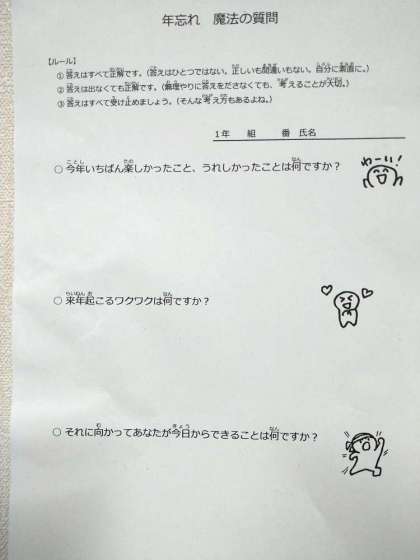 年忘れ 魔法の質問
【ルール】
①答えはすべて正解です。(答えはひとつではない。正しいも間違いもない。自分に素直に。)
②答えは出なくても正解です。(無理やりに答えをださなくても、考えることが大切。)
③答えはすべて受け止めましょう。(そんな考え方もあるよね。)
1年 組 番 氏名
○ 今年いちばん楽しかったこと、うれしかったことは何ですか？
わーい！
○ 来年起こるワクワクは何ですか？
○ それに向かってあなたが今日からできることは何ですか？